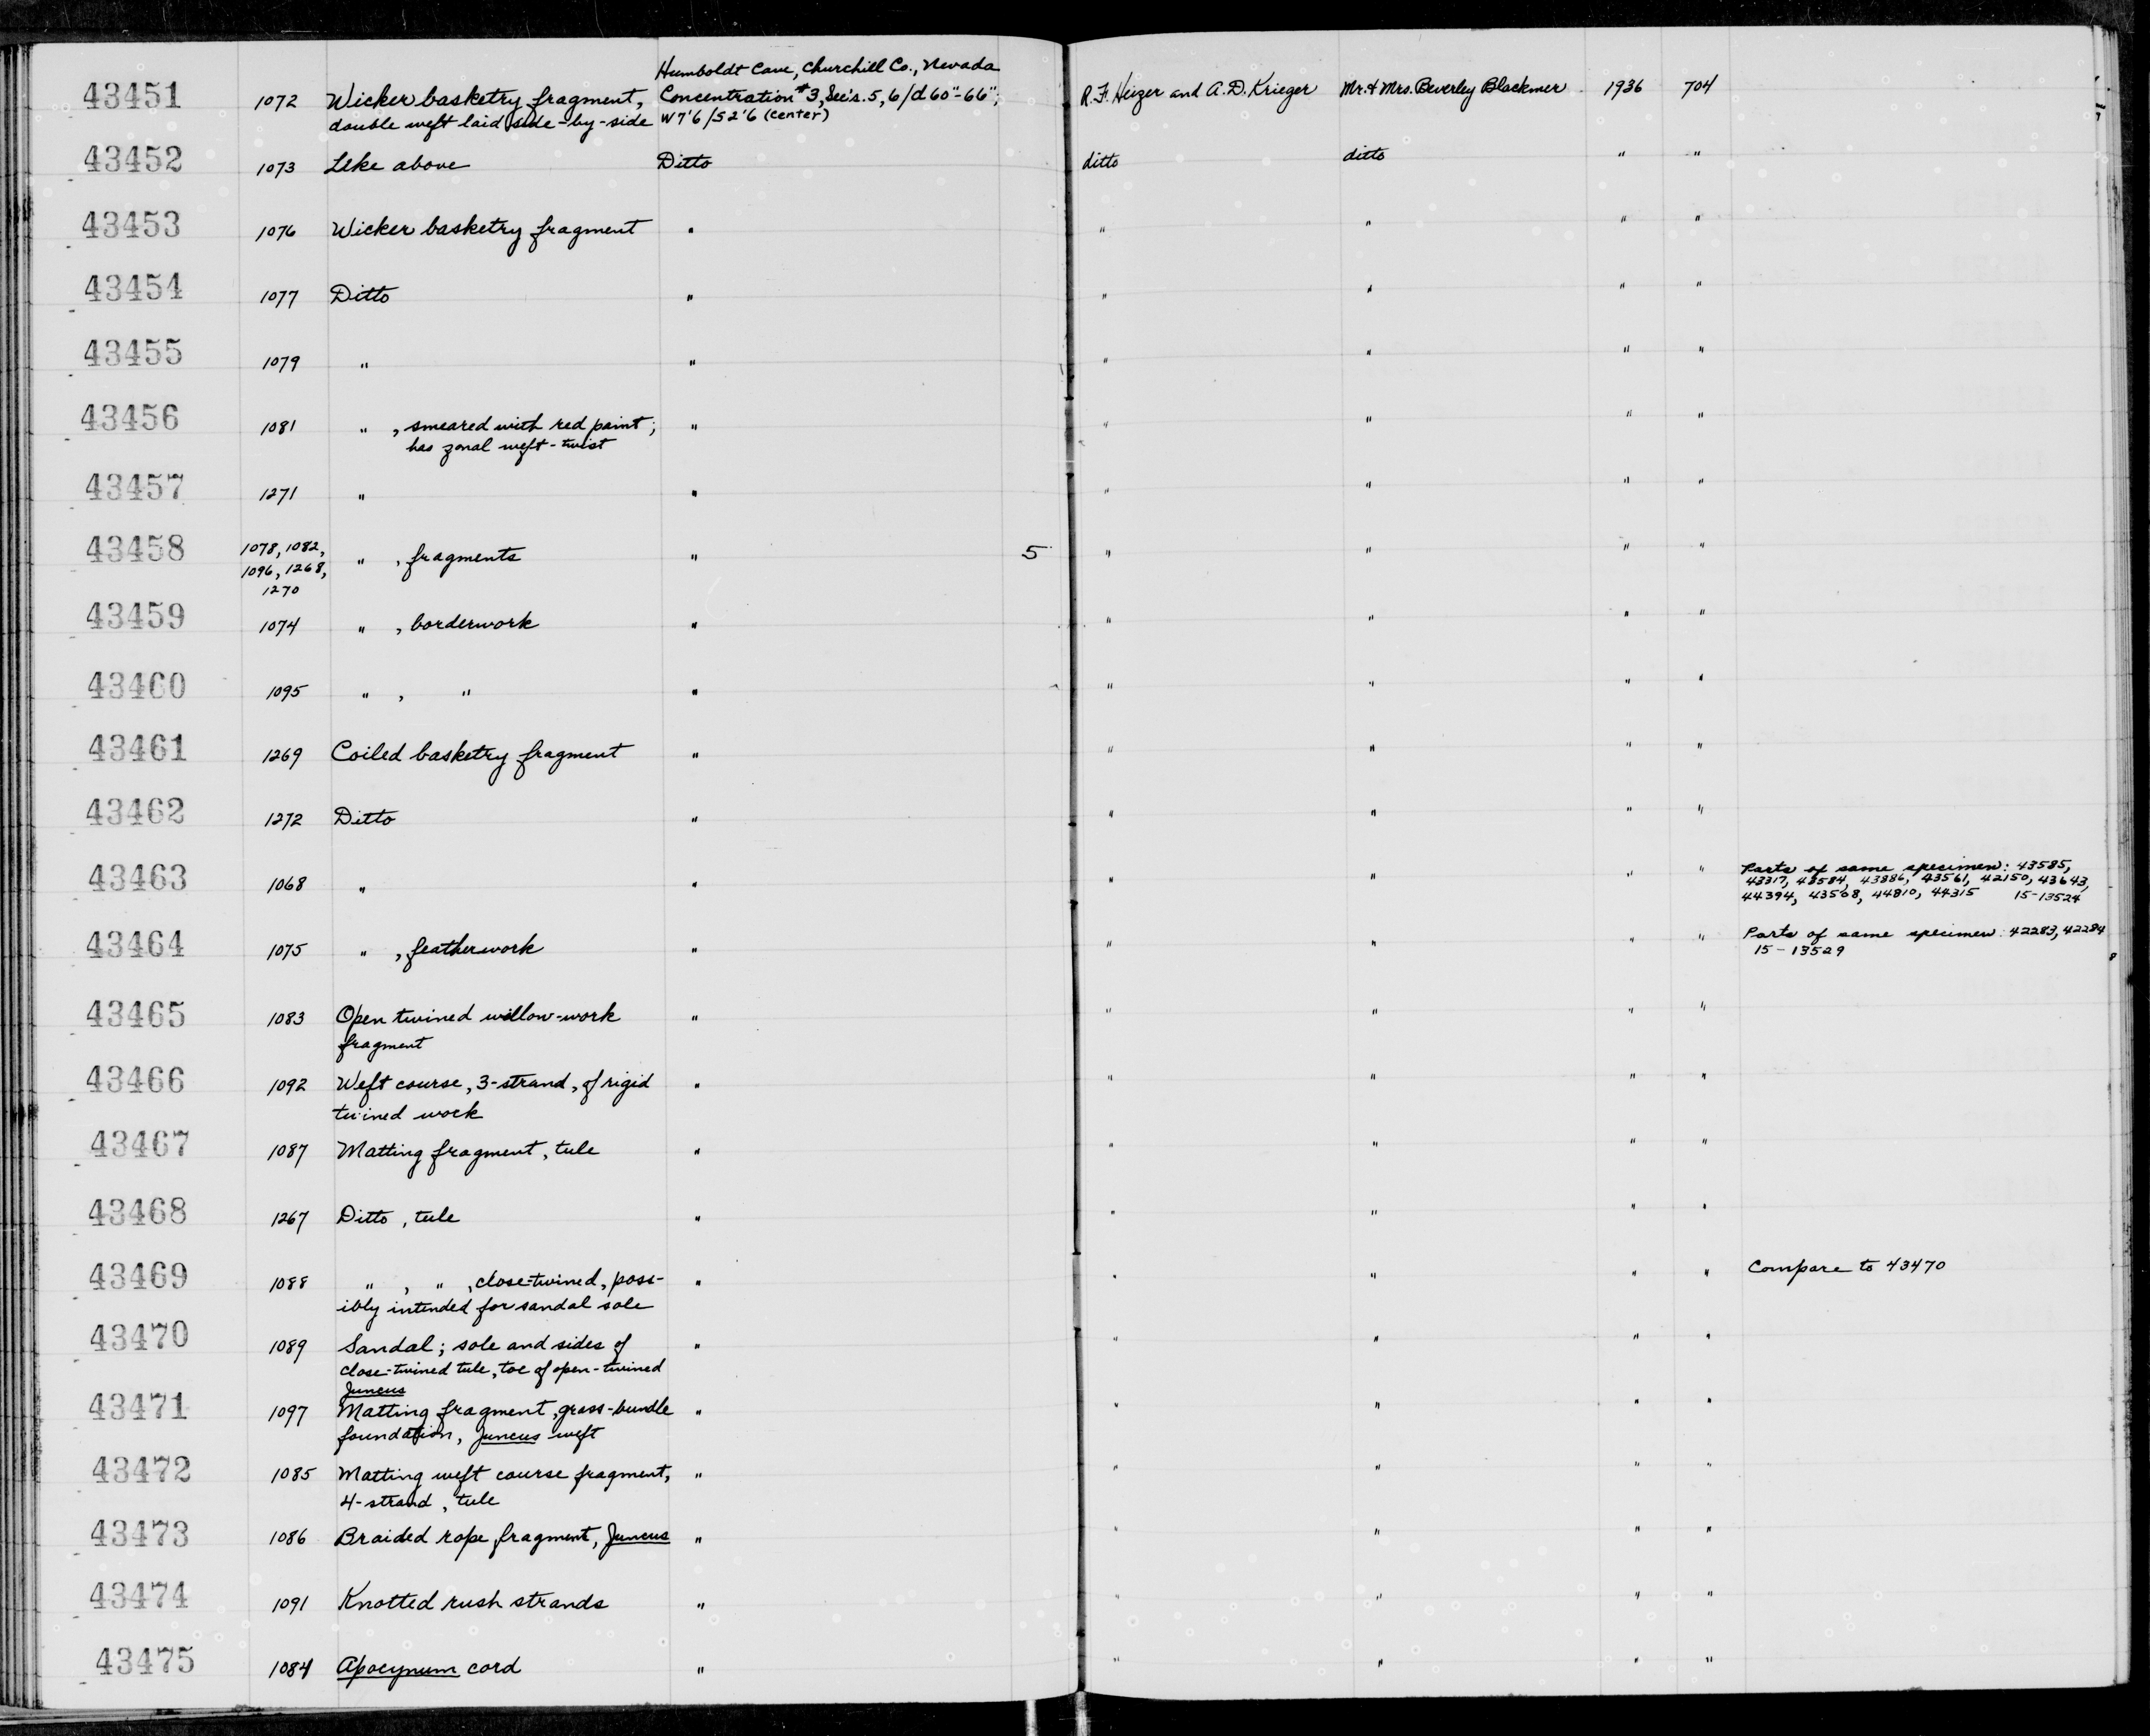 43451 1072 Wicker basketry fragment, double weft laid side-by-side Humboldt Cave, Churchill Co., Nevada Concentration #3, Sec's. 5, 6/d 60"-66"; W7'6/S2'6 (center) R.F. Heizer and A.D. Krieger Mr. & Mrs. Beverley Blackmer 1936 704
43452 1073 Like above Ditto ditto ditto " "
43453 1076 Wicker basketry fragment " " " " "
43454 1077 Ditto " " " " "
43455 1079 " " " " " "
43456 1081 " , smeared with red paint; has zonal weft-twist " " " " "
43457 1271 " " " " " "
43458 1078, 1082, 1096, 1268, 1270 " , fragments " 5 " " " "
43459 1074 " , borderwork " " " " "
43460 1095 " , " " " " " "
43461 1269 Coiled basketry fragment " " " " "
43462 1272 Ditto " " " " "
43463 1068 " " " " " " Parts of same specimen: 43585, 43317, 43584, 43886, 43561, 42150, 43643, 44394, 43568, 44810, 44315 15-13524
43464 1075 " , featherwork " " " " " Parts of same specimen: 42283, 42284 15-13529
43465 1083 Open twined willow-work fragment " " " " "
43466 1092 Weft course, 3-strand, of rigid twined work " " " " "
43467 1087 Matting fragment, tule " " " " "
43468 1267 Ditto, tule " " " " "
43469 1088 " , " , close-twined, possibly intended for sandal sole " " " " " Compare to 43470
43470 1089 Sandal; sole and sides of close-twined tule, toe of open-twined Juncus " " " " "
43471 1097 Matting fragment, grass-bundle foundation, Juncus weft " " " " "
43472 1085 Matting weft course fragment, 4-strand, tule " " " " "
43473 1086 Braided rope fragment, Juncus " " " " "
43474 1091 Knotted rush strands " " " " "
43475 1084 Apocynum cord " " " " "